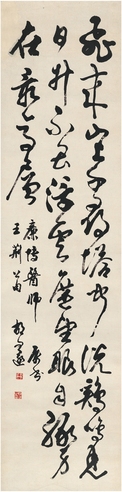 飛來山上千尋塔聞說雞鳴見
日升不畏浮雲遮望眼自緣身
在最高層
醫師屬
王荊公